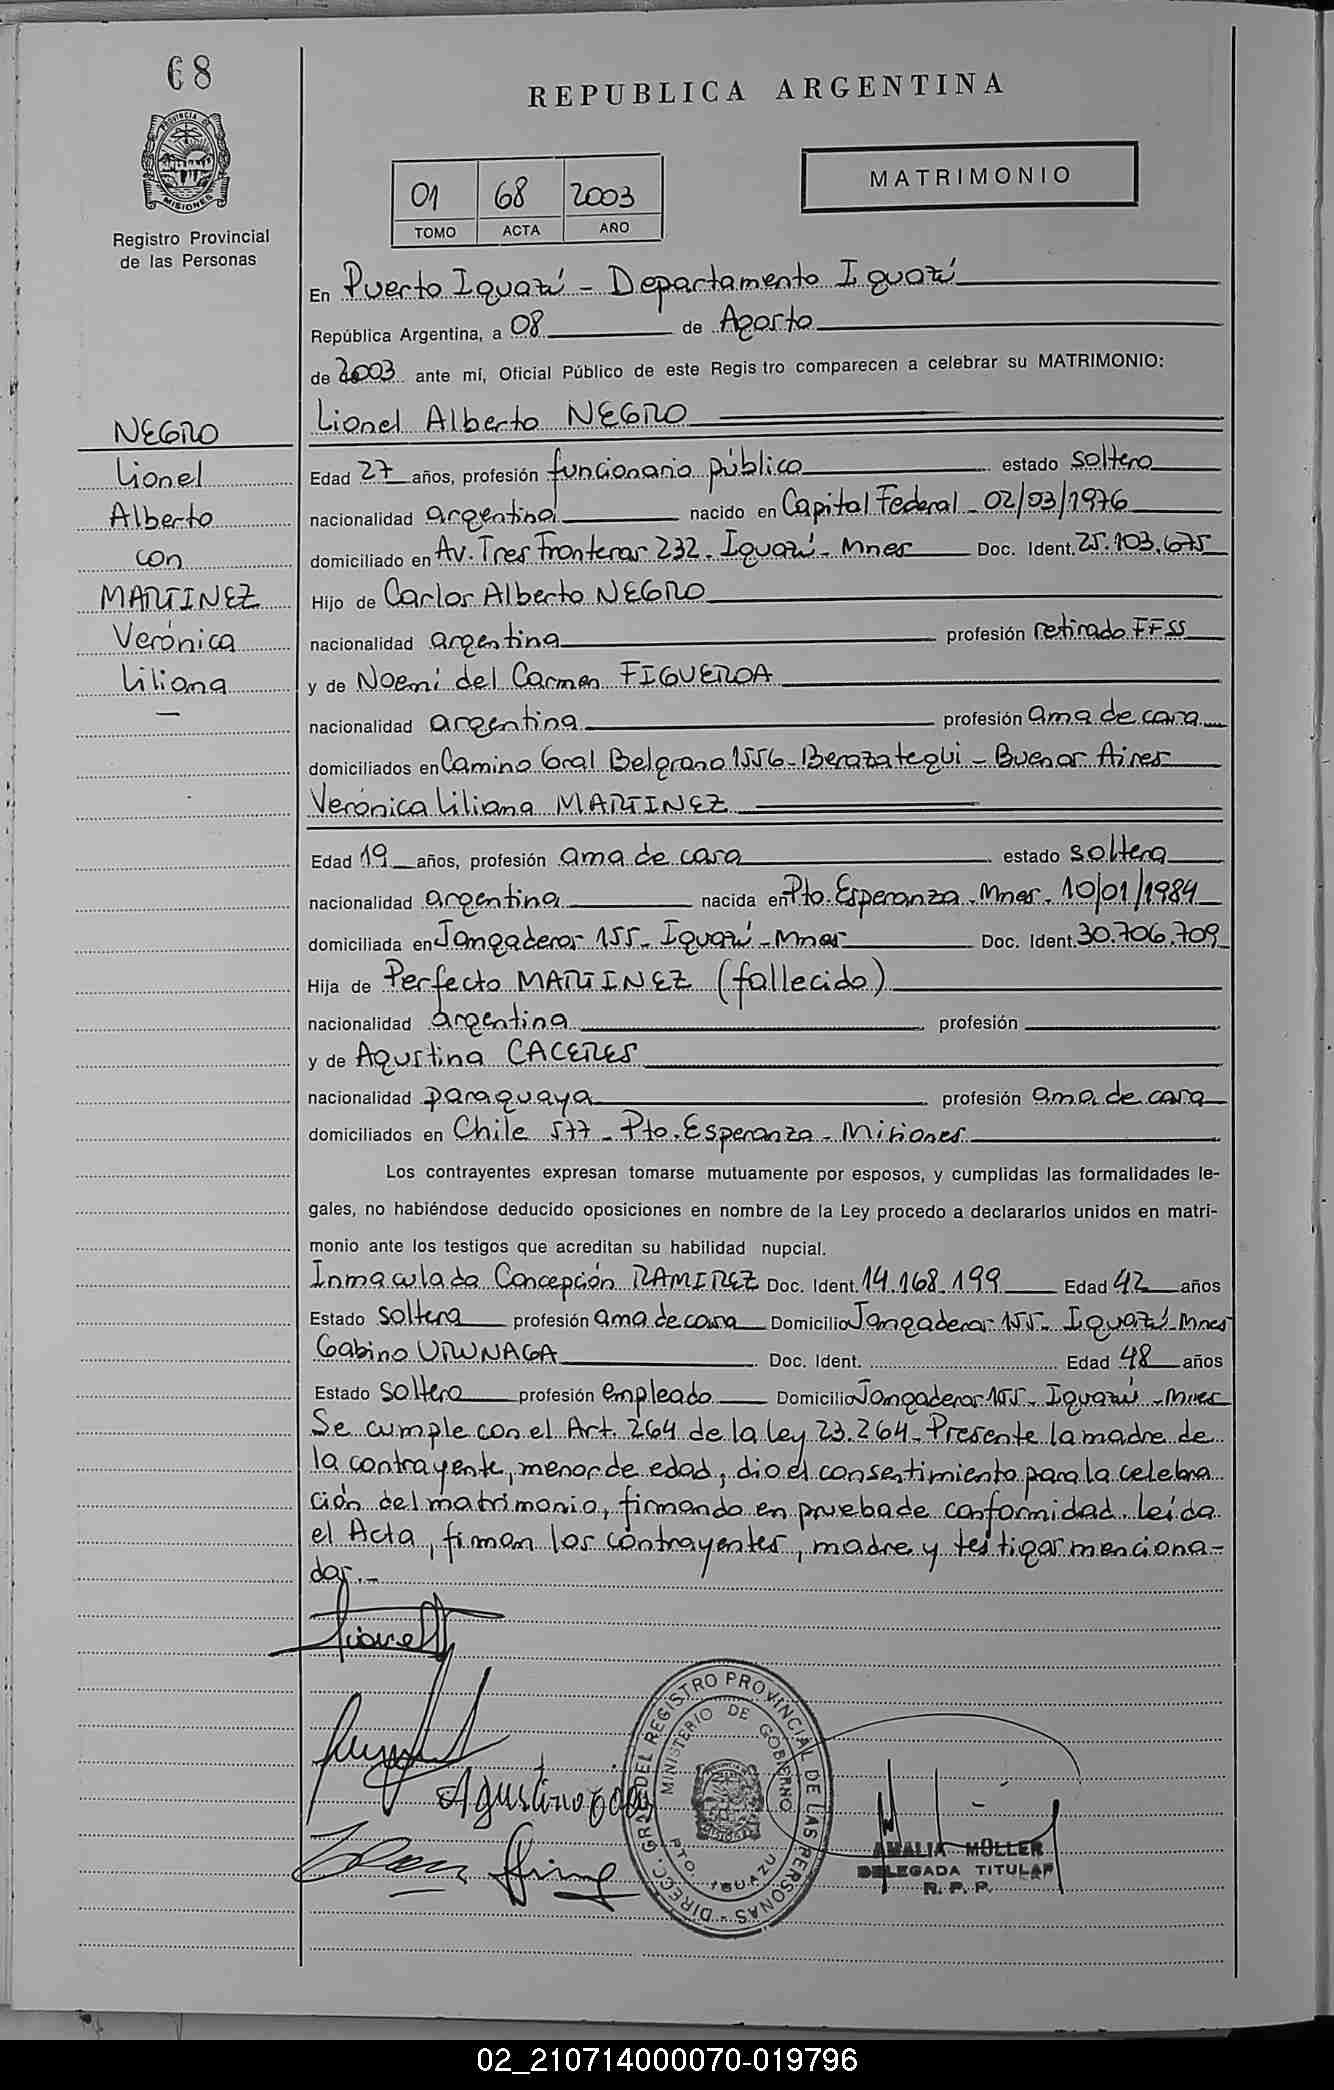 68
REPUBLICA ARGENTINA
PROVINCIA DE
MISIONES
MATRIMONIO
01 68 2003
TOMO ACTA AÑO
Registro Provincial
de las Personas
En Puerto Iguazú - Departamento Iguazú
República Argentina, a 08 de Agosto
de 2003 ante mí, Oficial Público de este Regis tro comparecen a celebrar su MATRIMONIO:
Lionel Alberto NEGRO
NEGRO
Lionel
Alberto
con
MARTINEZ
Verónica
Liliana
Edad 27 años, profesión funcionario público estado soltero
nacionalidad argentina nacido en Capital Federal - 02/03/1976
domiciliado en Av. Tres Fronteras 232 - Iguazú - Mnes Doc. Ident. 25.103.675
Hijo de Carlos Alberto NEGRO
nacionalidad argentina profesión retirado FFSS
y de Noemi del Carmen FIGUEROA
nacionalidad argentina profesión ama de casa
domiciliados en Camino Gral Belgrano 1556 - Berazategui - Buenos Aires
Verónica Liliana MARTINEZ
Edad 19 años, profesión ama de casa estado soltera
nacionalidad argentina nacida en Pto. Esperanza - Mnes - 10/01/1984
domiciliada en Jangaderos 155 - Iguazú - Mnes Doc. Ident. 30.706.709
Hija de Perfecto MARTINEZ (fallecido)
nacionalidad argentina profesión
y de Agustina CACERES
nacionalidad paraguaya profesión ama de casa
domiciliados en Chile 577 - Pto. Esperanza - Misiones
Los contrayentes expresan tomarse mutuamente por esposos, y cumplidas las formalidades le-
gales, no habiéndose deducido oposiciones en nombre de la Ley procedo a declararlos unidos en matri-
monio ante los testigos que acreditan su habilidad nupcial.
Inmaculada Concepción RAMIREZ Doc. Ident. 14.168.199 Edad 42 años
Estado soltera profesión ama de casa Domicilio Jangaderos 155 - Iguazú - Mnes
Gabino Doc. Ident. Edad 48 años
Estado soltero profesión empleado Domicilio Jangaderos 155 - Iguazú - Mnes
Se cumple con el Art. 264 de la ley 23.264 - Presente la madre de
la contrayente, menor de edad, dio el consentimiento para la celebra
ción del matrimonio, firmando en prueba de conformidad. Leída
el Acta, firman los contrayentes, madre y testigos menciona-
dos.-
Agustina
DIRECC. GRAL. DEL REGISTRO PROVINCIAL DE LAS PERSONAS
MINISTERIO DE GOBIERNO
PTO. IGUAZU
AMALIA MÜLLER
DELEGADA TITULAR
R. P. P.
02_210714000070-019796